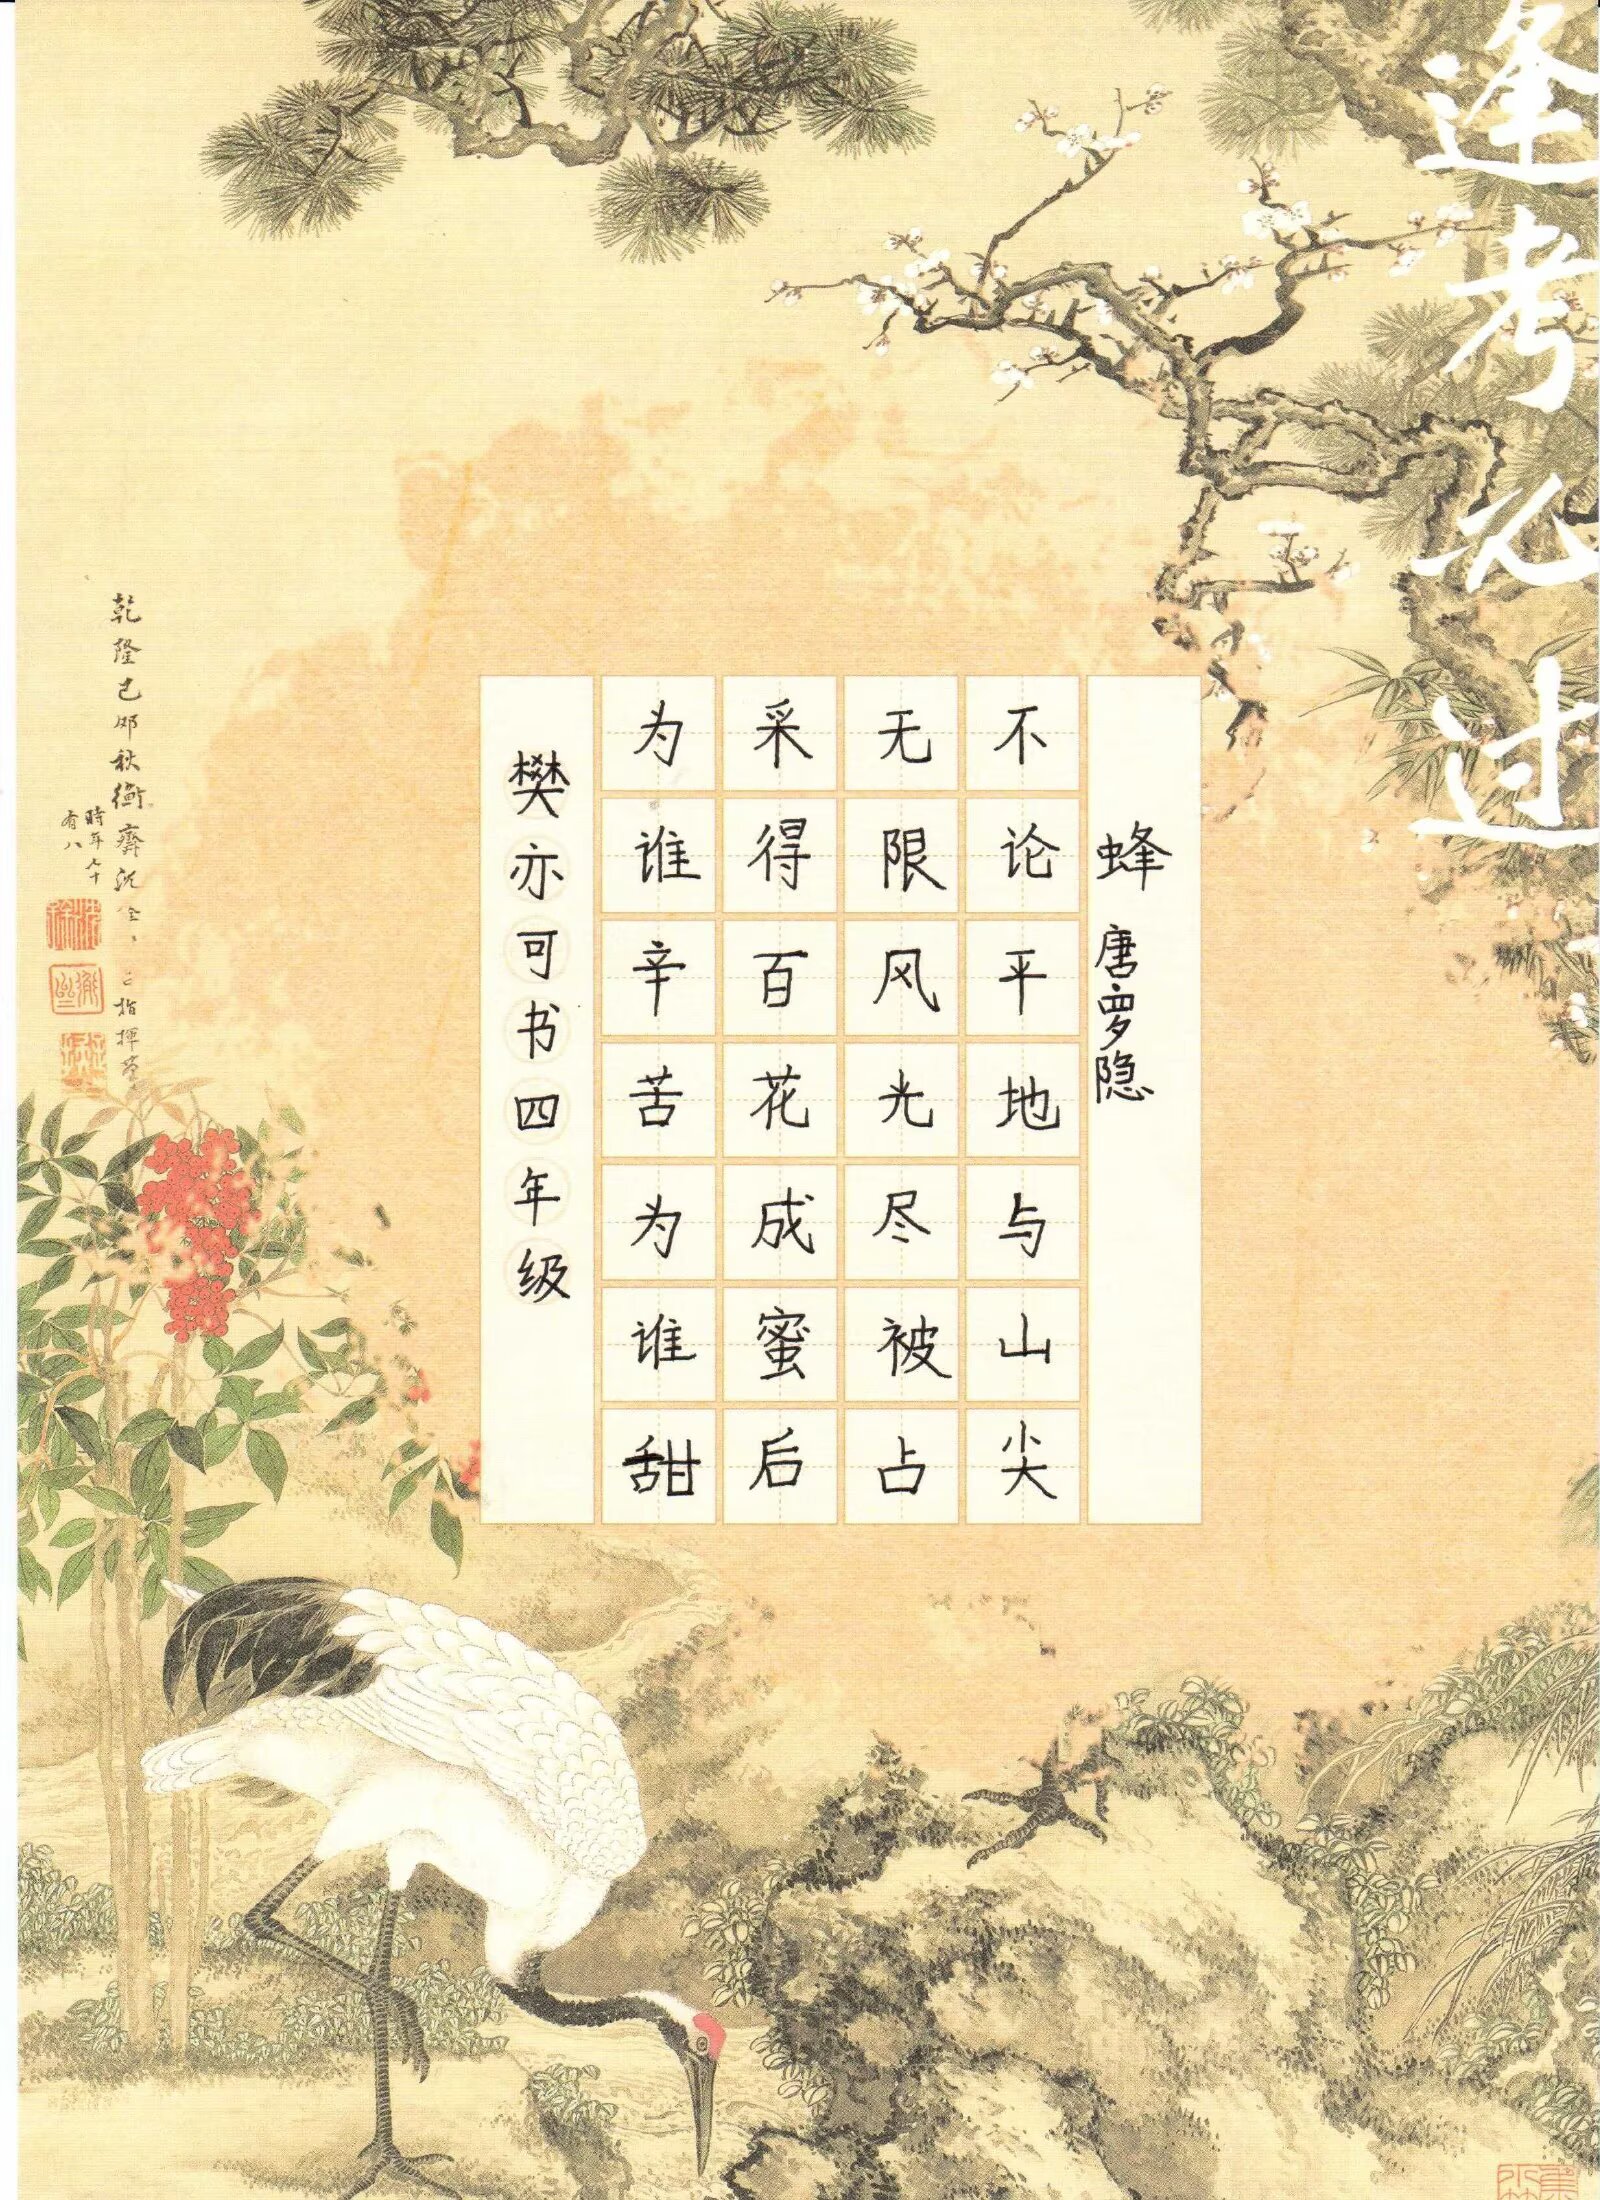 逢考必过
蜂 唐 罗隐
不论平地与山尖
无限风光尽被占
采得百花成蜜后
为谁辛苦为谁甜
樊亦可书四年级
乾隆己卯秋衡齋沈全
指揮
時年七十
有八